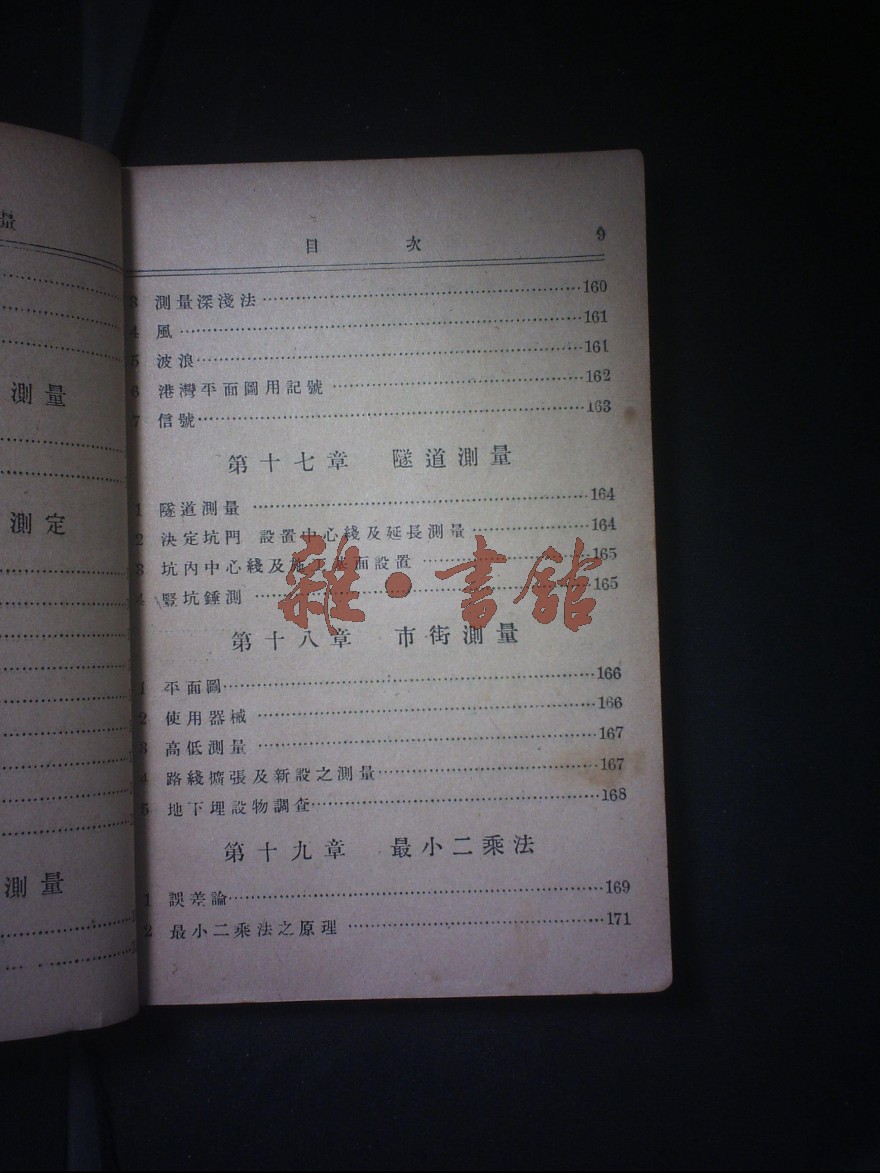 量
測量
測定
測量
目 次 9
3 測量深淺法 160
4 風 161
5 波浪 161
6 港灣平面圖用記號 162
7 信號 163
第十七章 隧道測量
1 隧道測量 164
2 決定坑門 設置中心綫及延長測量 164
3 坑內中心綫及施工基面設置 165
4 豎坑錘測 165
第十八章 市街測量
1 平面圖 166
2 使用器械 166
3 高低測量 167
4 路綫擴張及新設之測量 167
5 地下埋設物調查 168
第十九章 最小二乘法
1 誤差論 169
2 最小二乘法之原理 171
雜·書館